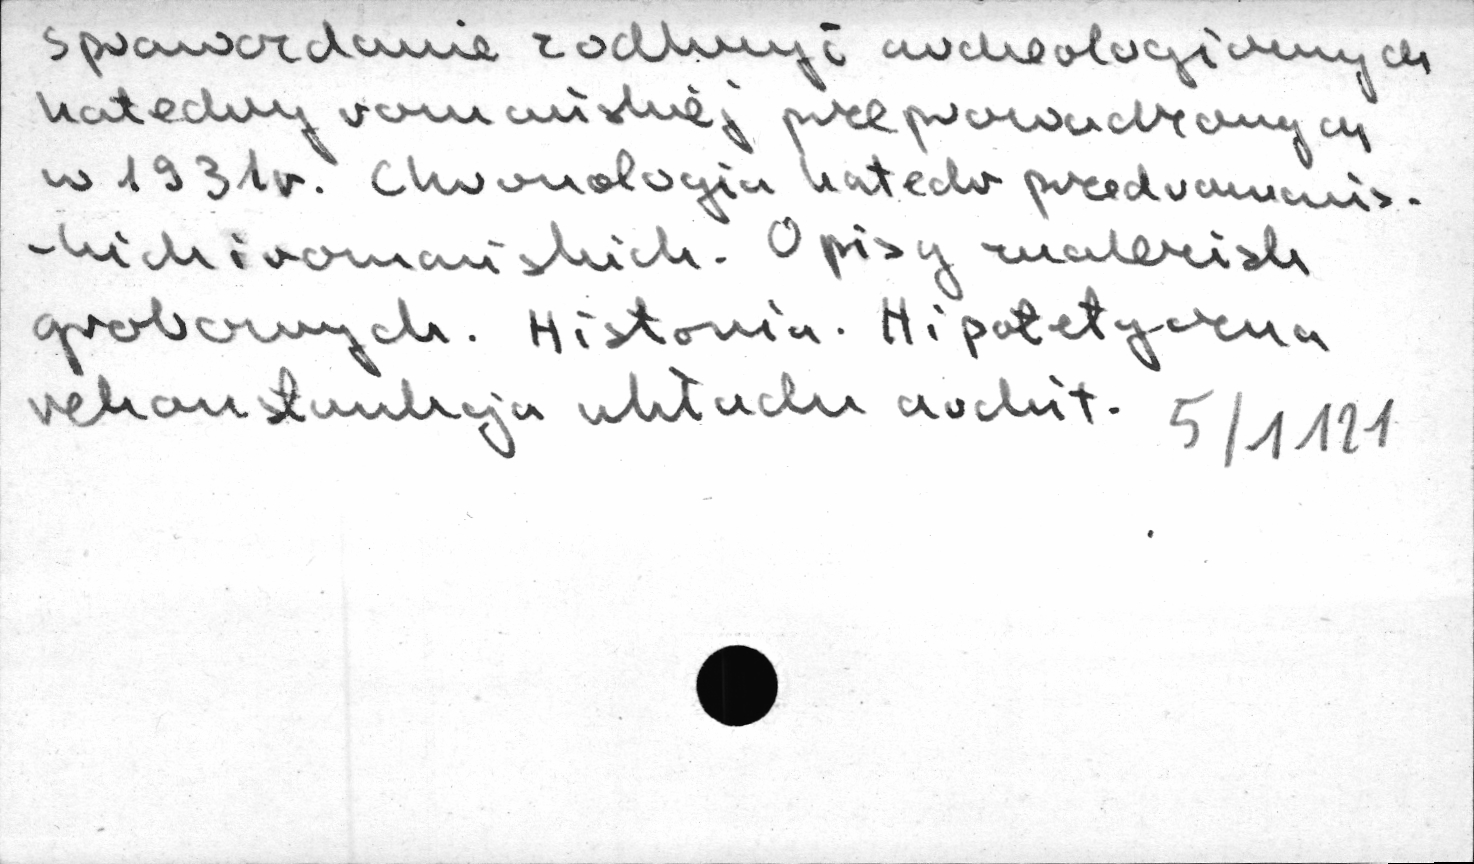 sprawozdanie z odkryć archeologicznych
katedry romańskiej przeprowadzonych
w 1931r. Chronologia katedr przedromańs-
-kich i romańskich. Opisy znalezisk
grobowych. Historia. Hipotetyczna
rekonstrukcja układu archit. 5/1121